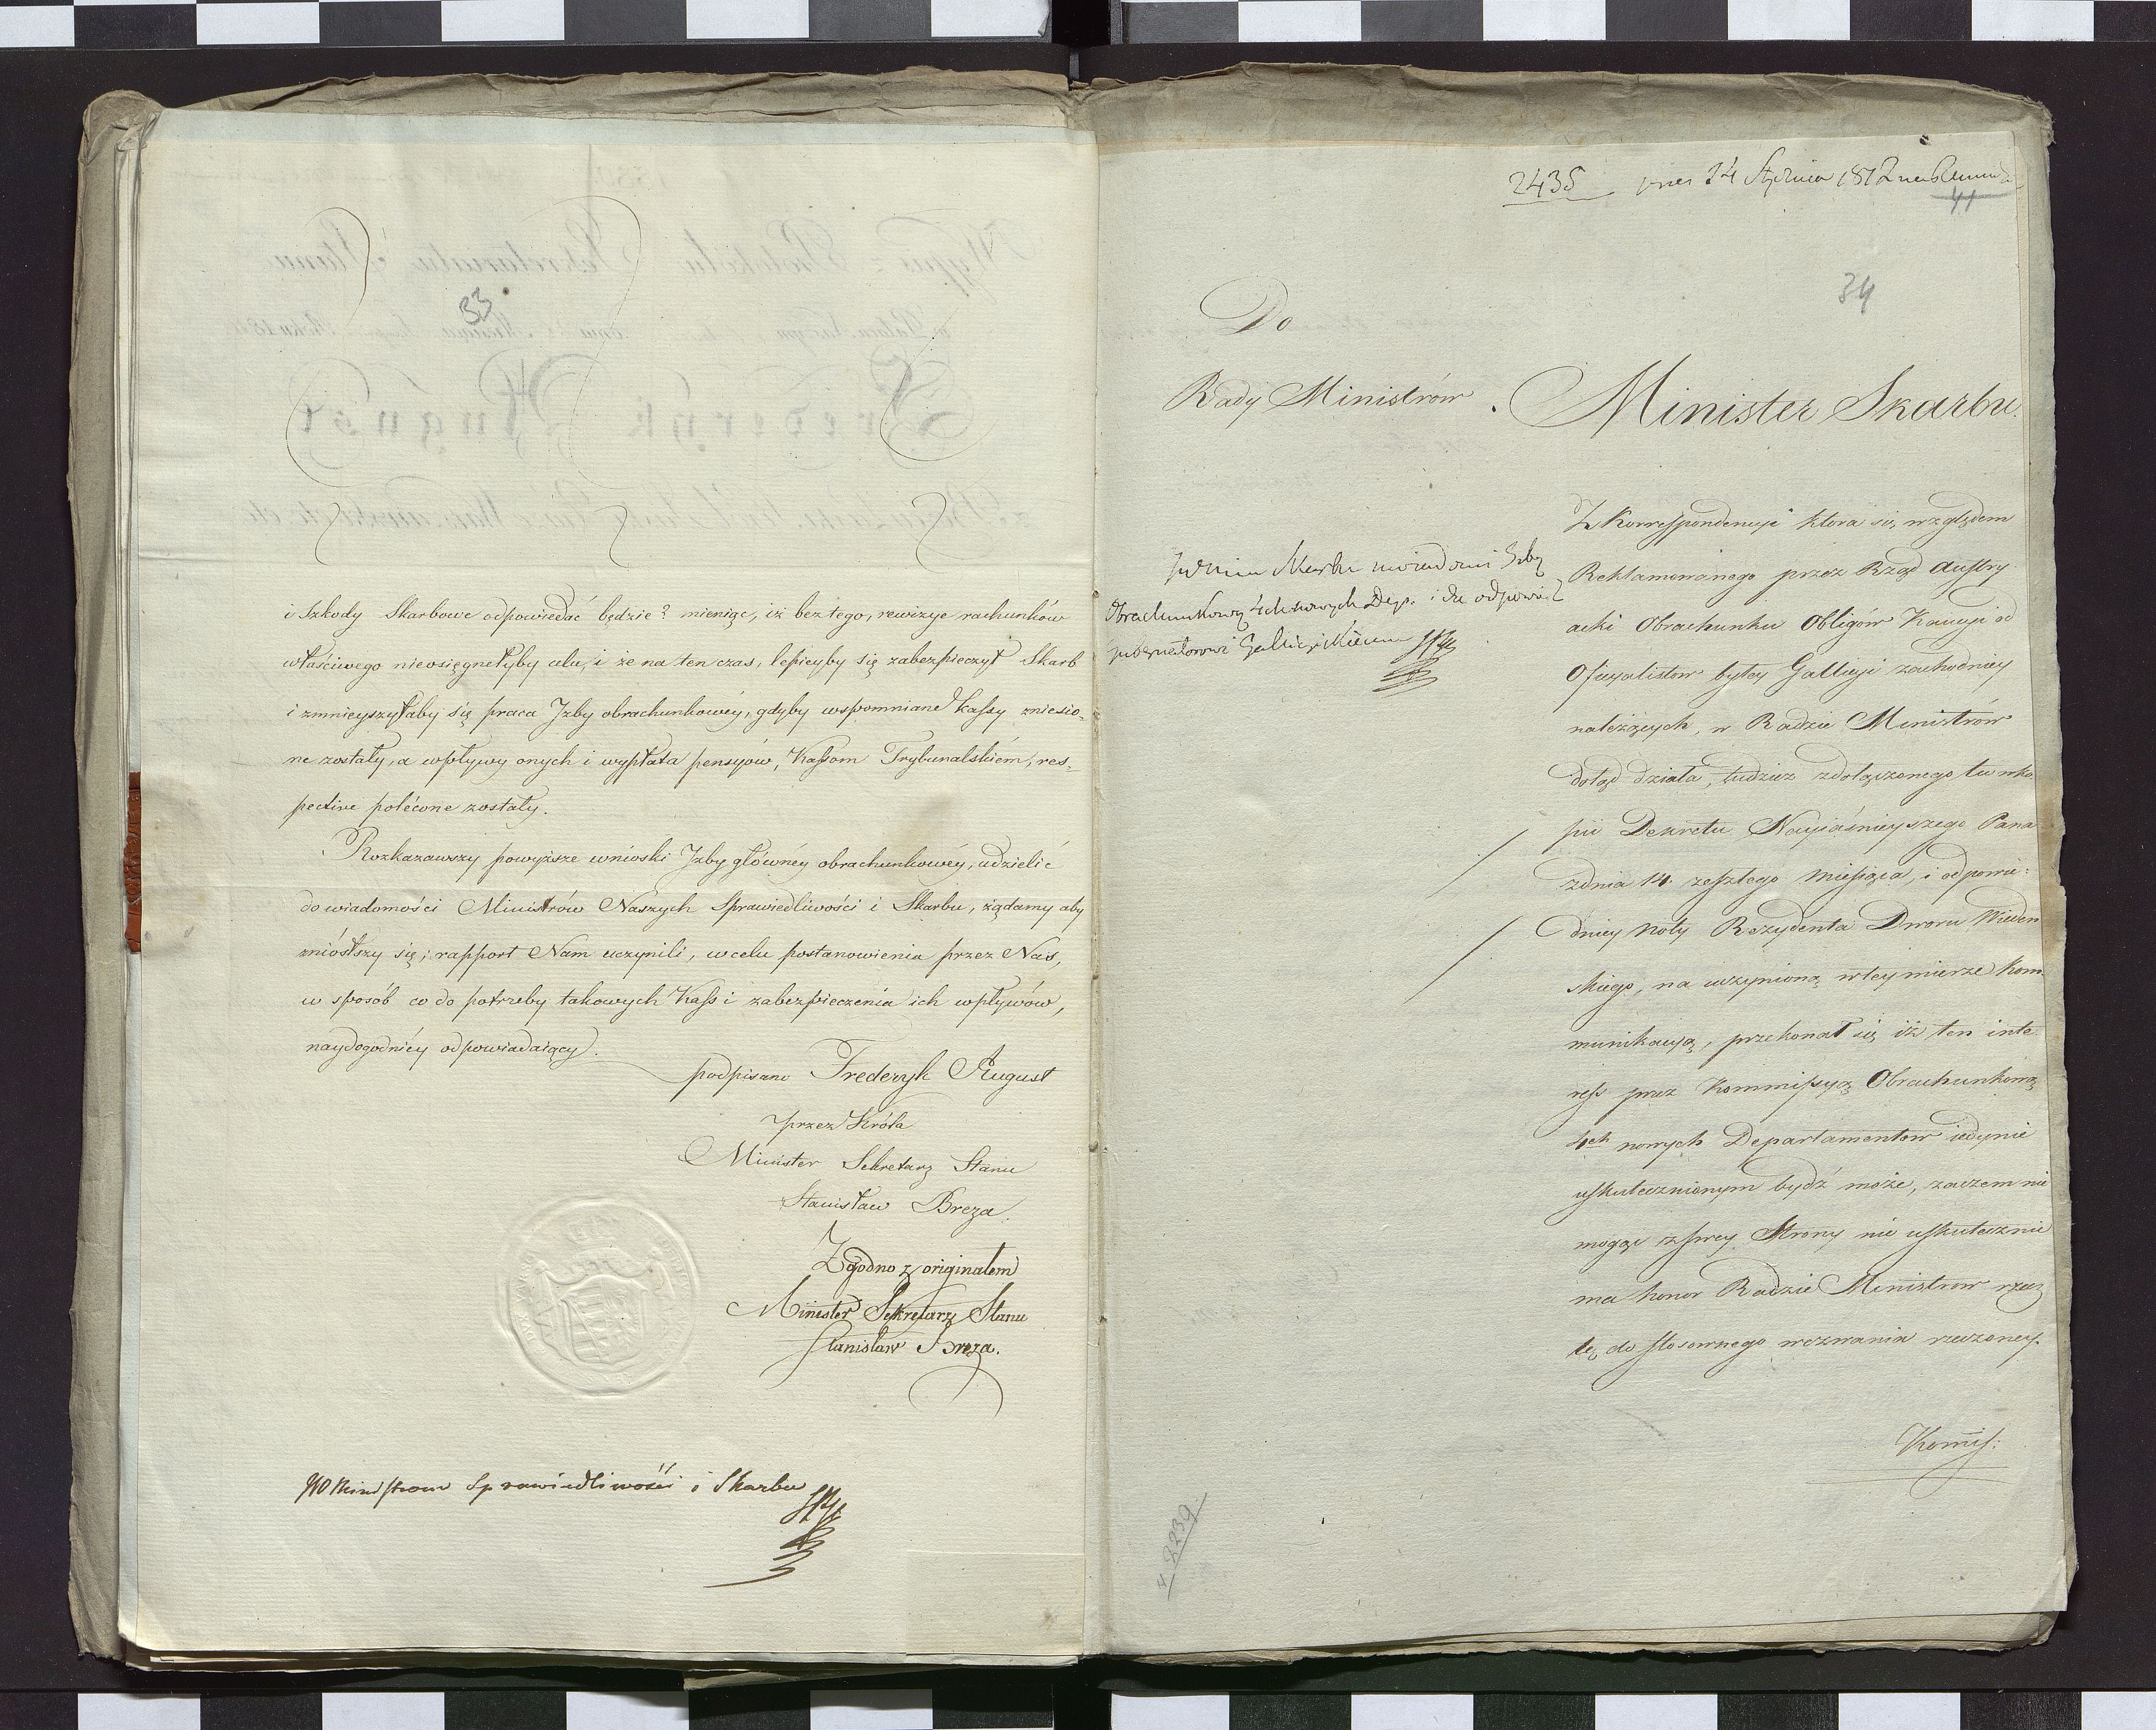 33
i szkody Skarbowe odpowiedać będzie? mieniąc, iż bez tego, rewizye rachunków
właściwego nieosięgnełyby celu, i że na ten czas, lepieyby się zabezpieczył Skarb
i zmnieyszyłaby się praca Jzby obrachunkowéy, gdyby wspomniane kassy zniesio„
ne zostały, a wpływy onych i wypłata pensyów, Kassom Trybunalskiém, res„
pective polécone zostały.
Rozkazawszy powyższe wnioski Jzby głównéy obrachunkowéy, udzielić
do wiadomości Ministrów Naszych Sprawiedliwości i Skarbu, żądamy aby
zniósłszy się; rapport Nam uczynili, w celu postanowienia przez Nas,
w sposób co do potrzeby takowych Kass i zabezpieczenia ich wpływów,
naydogodniéy odpowiadaiący.
podpisano Frederyk August
przez Króla
Minister Sekretarz Stanu
Stanisław Breza.
Zgodno z originałem
Minister Sekretarz Stanu
Stanisław Breza.
Ministrom Sprawiedliwości i Skarbu
2435 14 Stycznia 1812
41
34
Do
Rady Ministrów.
Minister Skarbu.
Skarbu uwiadomi Jzbę
Obrachunkową 4ch nowych Dep. i da odpowiedź
gubernatorowi Gallicyiskiemu
Z Korrespondencyi ktora się względem
Reklamowanego przez Rząd Austry
acki Obrachunku Obligów Kaucyi od
Oficyalistow byłey Gallicyi zachodniey
należących, w Radzie Ministrów
dotąd działa, tudzież z dołączonego tu w ko
pii Dekretu Nayiaśnieyszego Pana
z dnia 14. zeszłego Miesiąca, i odpowie:
dniey Noty Rezydenta Dworu Wieden
skiego, na uczynioną w tey mierze Kom
munikacyą, przekonał się iż ten inte
ress przez Kommissyą Obrachunkową
4ch nowych Departamentow iedynie
uskutecznionym bydź może, zaczem nie
mogąc z swey Strony nic uskutecznić
ma honor Radzie Ministrow rzecz
tę, do stosownego wezwania rzeczoney.
Komis:
2239